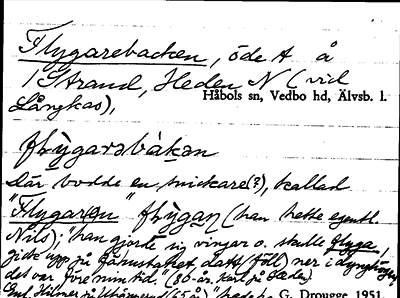 Flygarebacken, öde t å
1 Strand, Heden N (vid
Långkas),
Håbols sn, Vedbo hd, Älvsb. l.
flỳgarəbàkən
Där bodde en snickare(?), kallad
"Flygaren" flỳgan (han hette egentl.
Nils); "han gjorde sig vingar o. skulle flyga,
gick upp på taket, datt (föll) ner i
det var före min tid." (86-år. karl på Heden)
G. Drougge 1951.